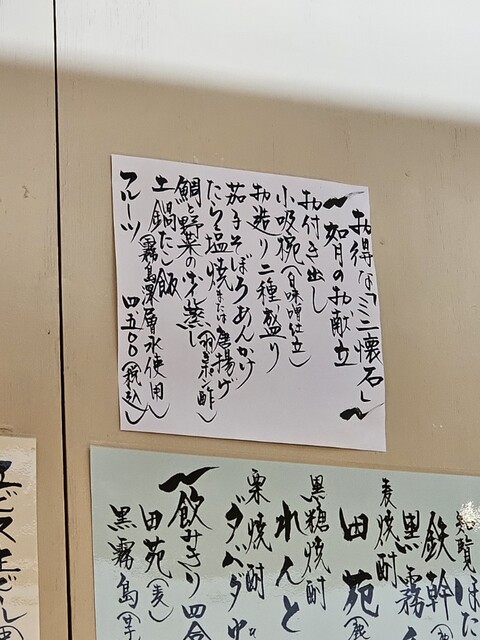 お得な「ミニ懐石」
〜如月のお献立〜
お付き出し
小吸椀(白味噌仕立)
お造り二種盛り
茄子そぼろあんかけ
たらの塩焼または唐揚げ
鯛と野菜のせいろ蒸し(羽ぎポン酢)
土鍋だし飯(霧島深層水使用)
フルーツ 四、五〇〇(税込)
知覧
ほた
鉄幹
黒霧
麦焼酎
田苑
黒糖焼酎
れんと
栗焼酎
ダバダ
〜飲みきり四合
田苑(麦)
黒霧島(芋)
ヱビスビール